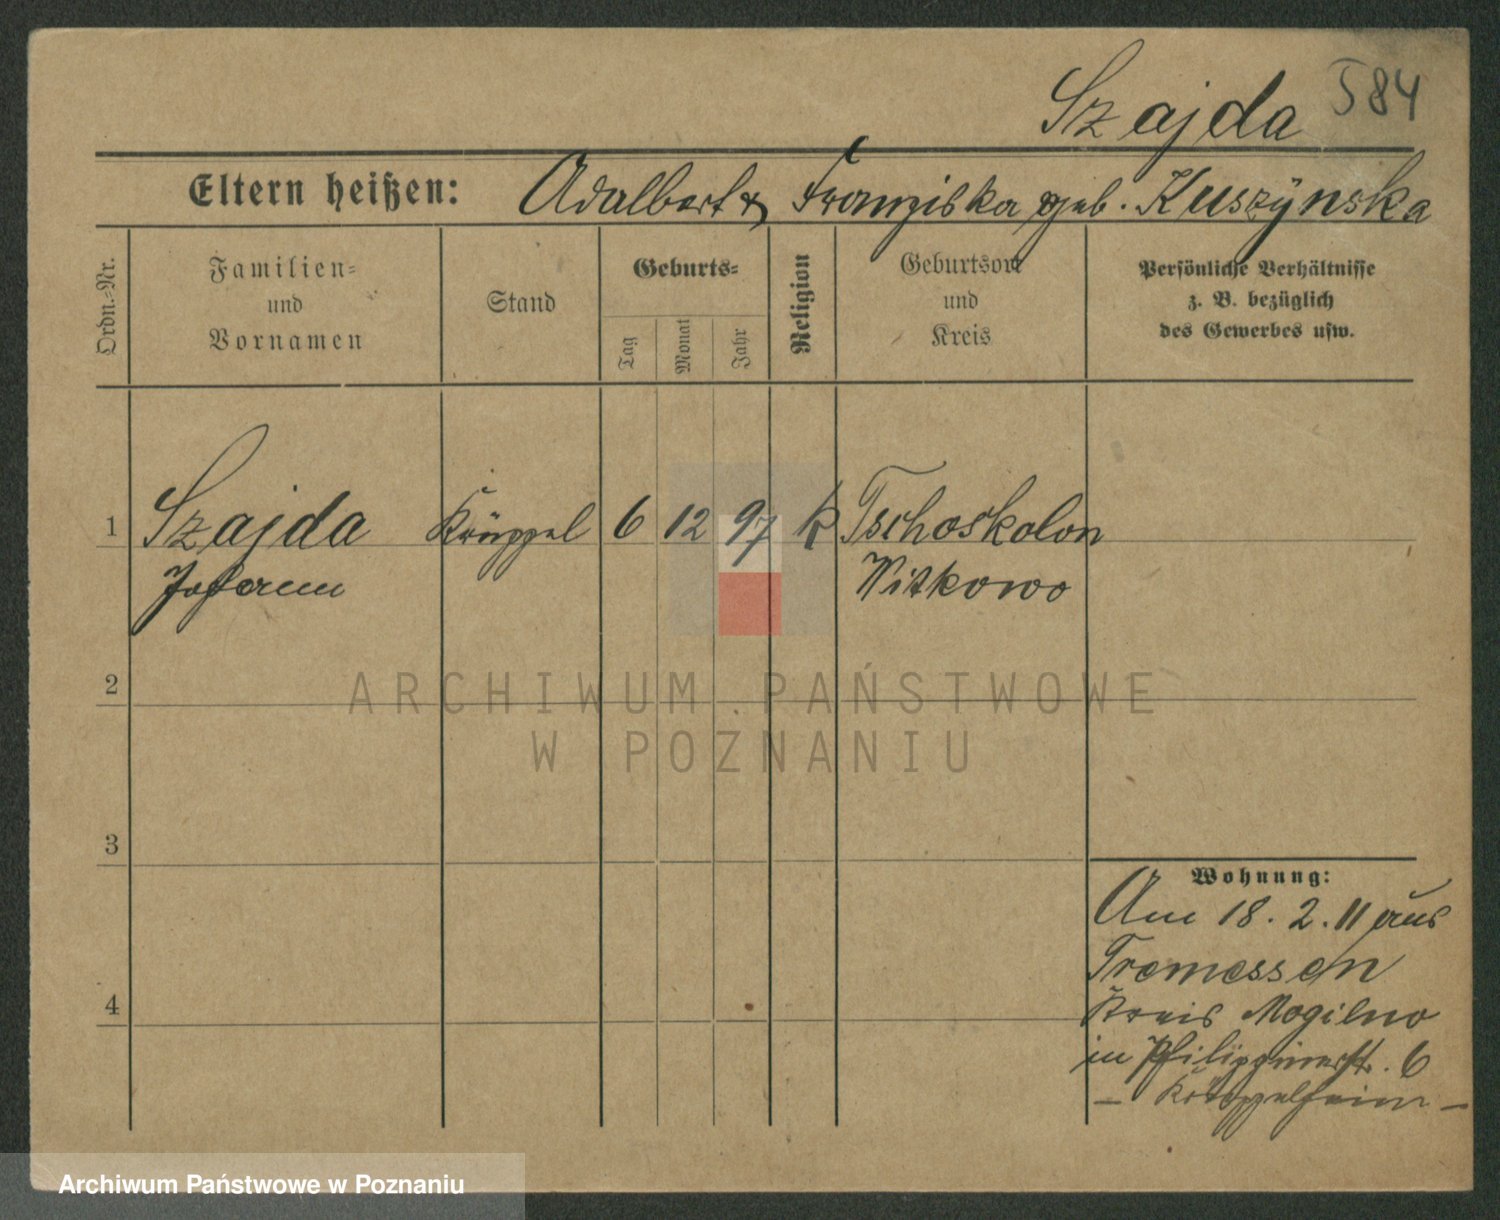 Szajda 584
Eltern heißen: Adalbert & Franziska geb. Kuszÿnska
Ordn.-Nr.
Familien-
und
Vornamen
Stand
Geburts-
Tag
Monat
Jahr
Religion
Geburtsort
und
Kreis
Persönliche Verhältnisse
z. B. bezüglich
des Gewerbes usw.
1 Szajda Krüppel 6 12 97 k Tschoskolon
Johann Witkowo
2
ARCHIWUM PAŃSTWOWE
W POZNANIU
3
Wohnung:
Am 18. 2. 11 aus
Tremessen
4
Kreis Mogilno
in Philippinerstr. 6
— Krüppelheim —
Archiwum Państwowe w Poznaniu